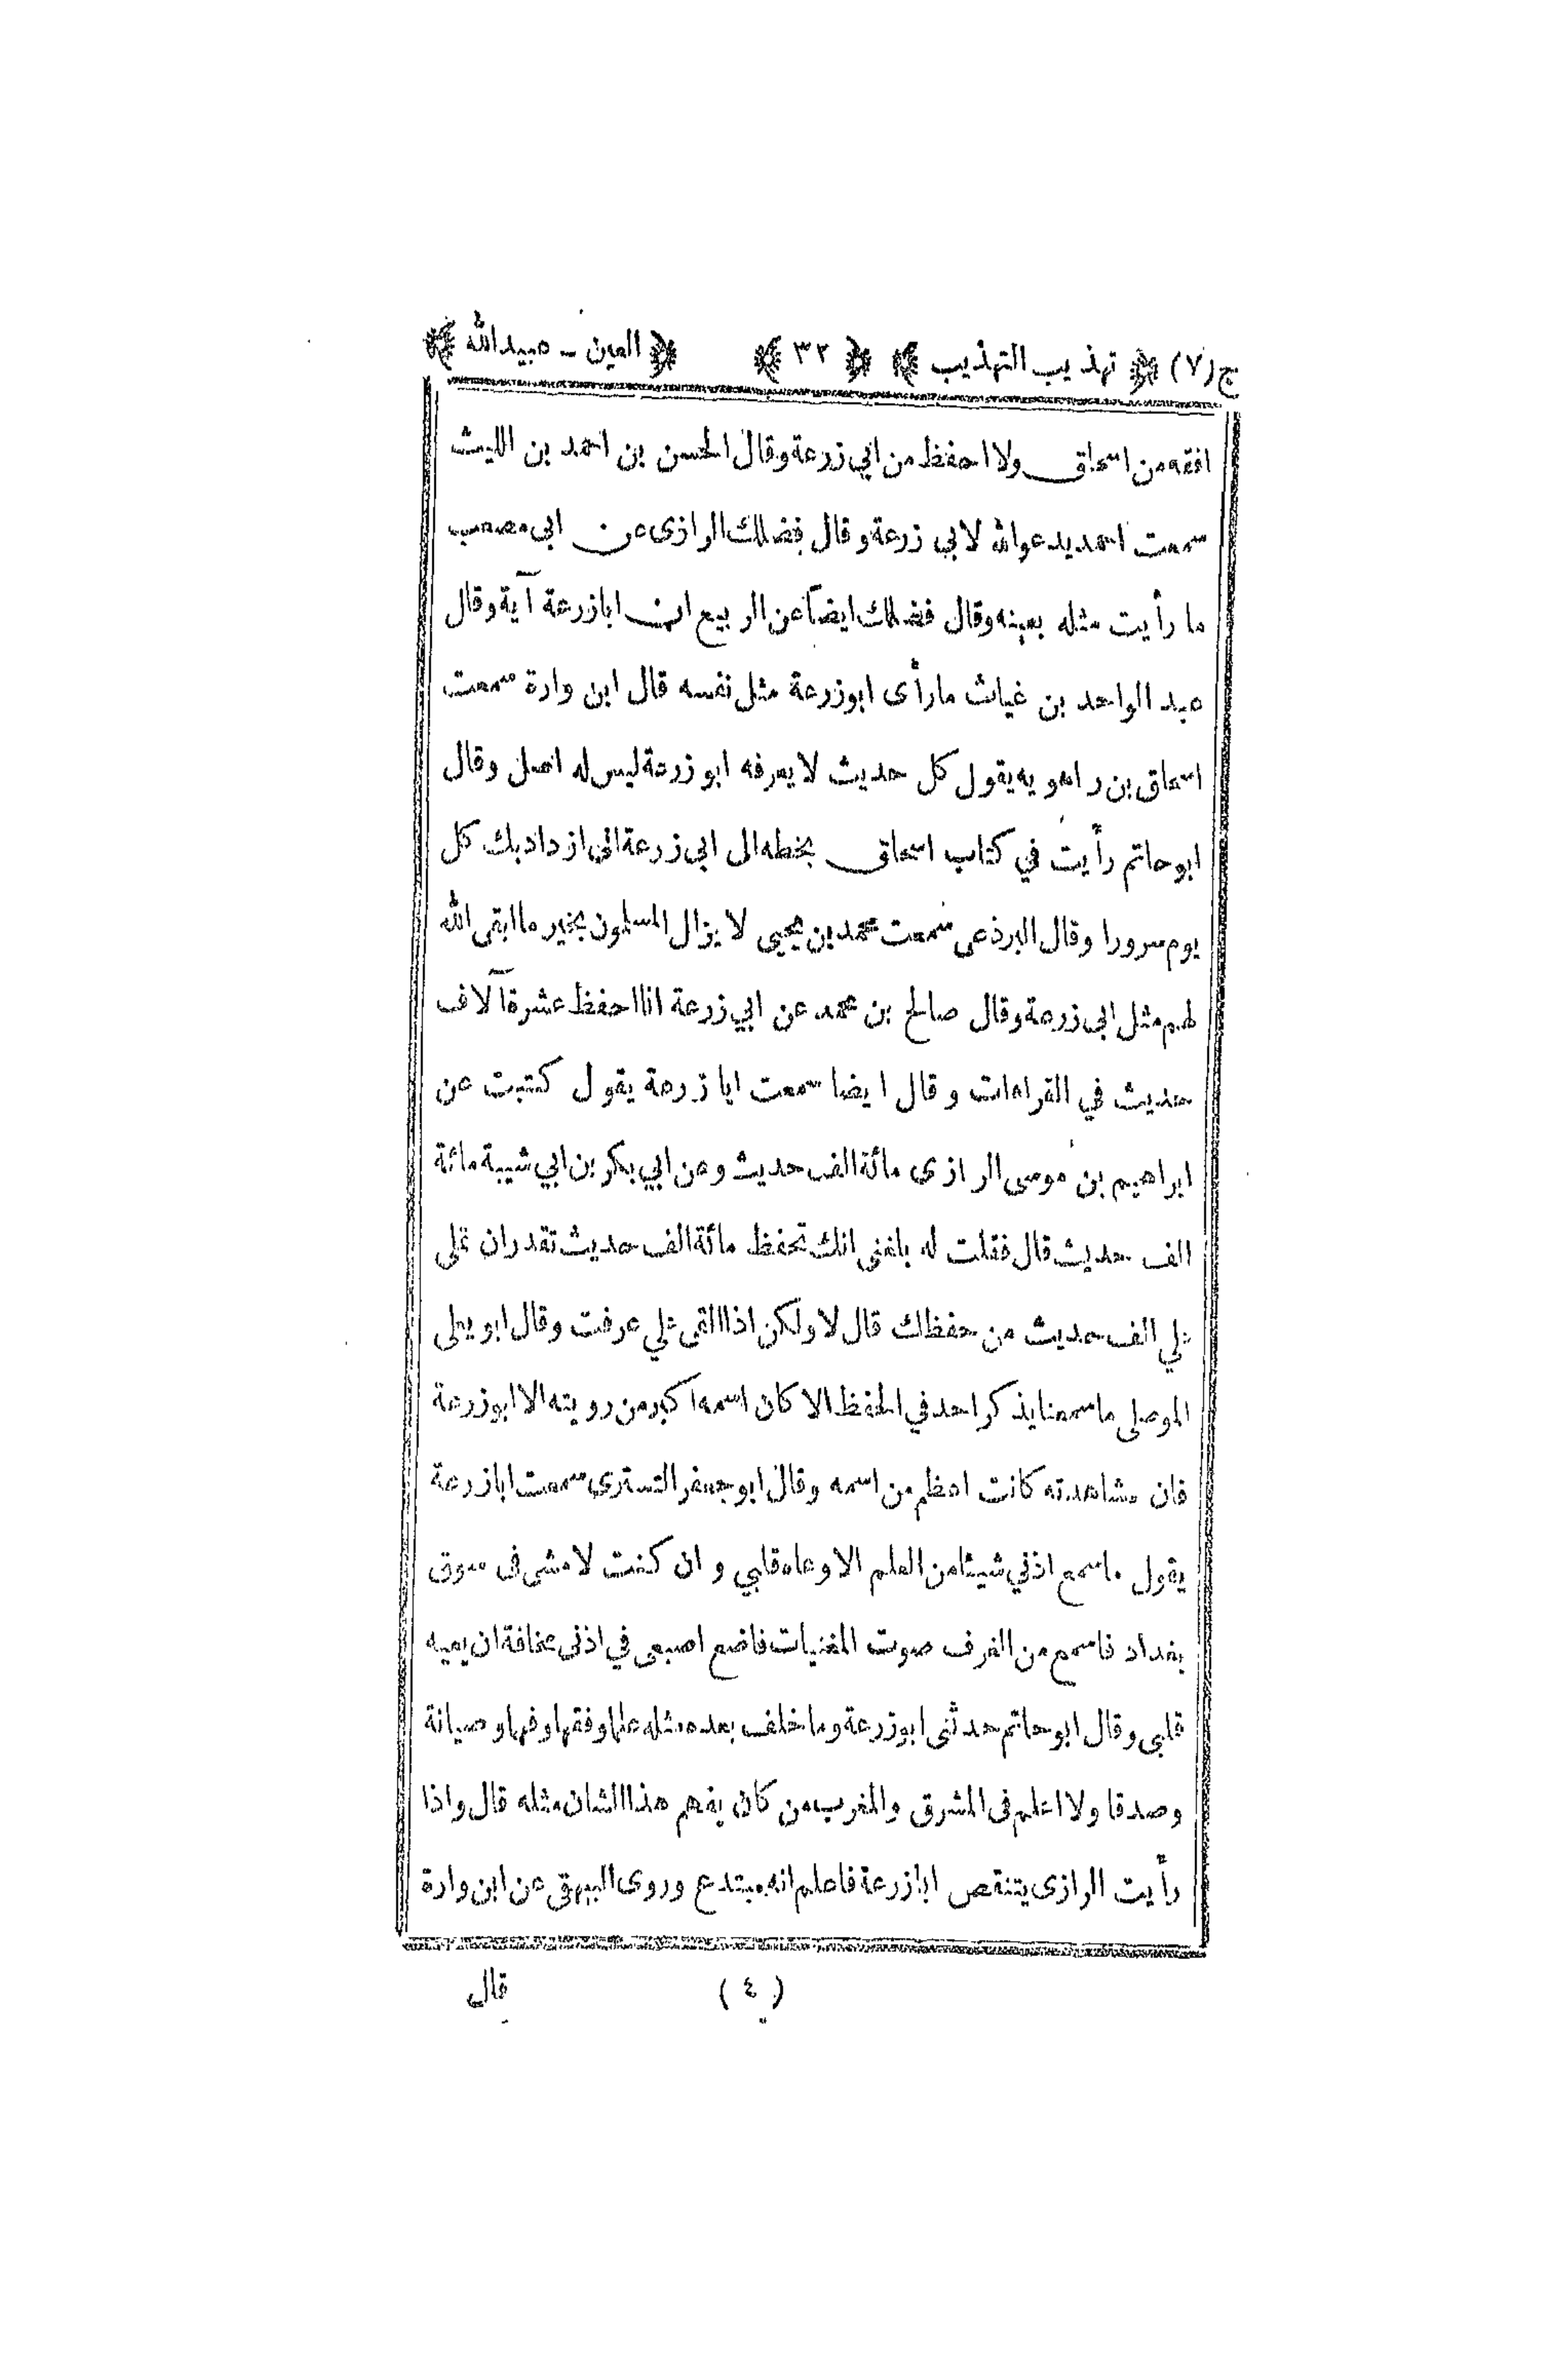 ج(٧) ﴿ تهذيب التهذيب ﴾ ﴿ ٣٢ ﴾ ﴿ العين - عبيدالله ﴾
افقه من اسحاق ولا احفظ من ابي زرعة وقال الحسن بن احمد بن الليث
سمعت احمد يدعو الله لابي زرعة وقال فضلك الرازى عن ابي مصعب
ما رأيت مثله بعينه وقال فضلك ايضاً عن الربيع ان ابا زرعة آية وقال
عبد الواحد بن غياث ما رأى ابو زرعة مثل نفسه قال ابن وارة سمعت
اسحاق بن راهويه يقول كل حديث لا يعرفه ابو زرعة ليس له اصل وقال
ابو حاتم رأيت في كتاب اسحاق بخطه الى ابي زرعة انى ازداد بك كل
يوم سرورا وقال البرذعى سمعت محمد بن يحيى لا يزال المسلمون بخير ما ابقى الله
لهم مثل ابي زرعة وقال صالح بن محمد عن ابي زرعة انا احفظ عشرة آلاف
حديث في القراءات وقال ايضا سمعت ابا زرعة يقول كتبت عن
ابراهيم بن موسى الرازى مائة الف حديث وعن ابي بكر بن ابي شيبة مائة
الف حديث قال فقلت له بلغنى انك تحفظ مائة الف حديث تقدر ان تملى
علي الف حديث من حفظك قال لا ولكن اذا القى علي عرفت وقال ابو يعلى
الموصلى ما سمعنا يذكر احد في الحفظ الا كان اسمه اكبر من رويته الا ابو زرعة
فان مشاهدته كانت اعظم من اسمه وقال ابو جعفر التسترى سمعت ابا زرعة
يقول ما سمع اذني شيئا من العلم الا وعاه قلبي و ان كنت لامشى فى سوق
بغداد فاسمع من الغرف صوت المغنيات فاضع اصبعى في اذنى مخافة ان يعيه
قلبى وقال ابو حاتم حدثنى ابو زرعة وما خلف بعده مثله علما وفقها وفهما وصيانة
وصدقا ولا اعلم فى المشرق والمغرب من كان يفهم هذا الشان مثله قال واذا
رأيت الرازى ينتقص ابا زرعة فاعلم انه مبتدع وروى البيهقى عن ابن وارة
(٤) قال